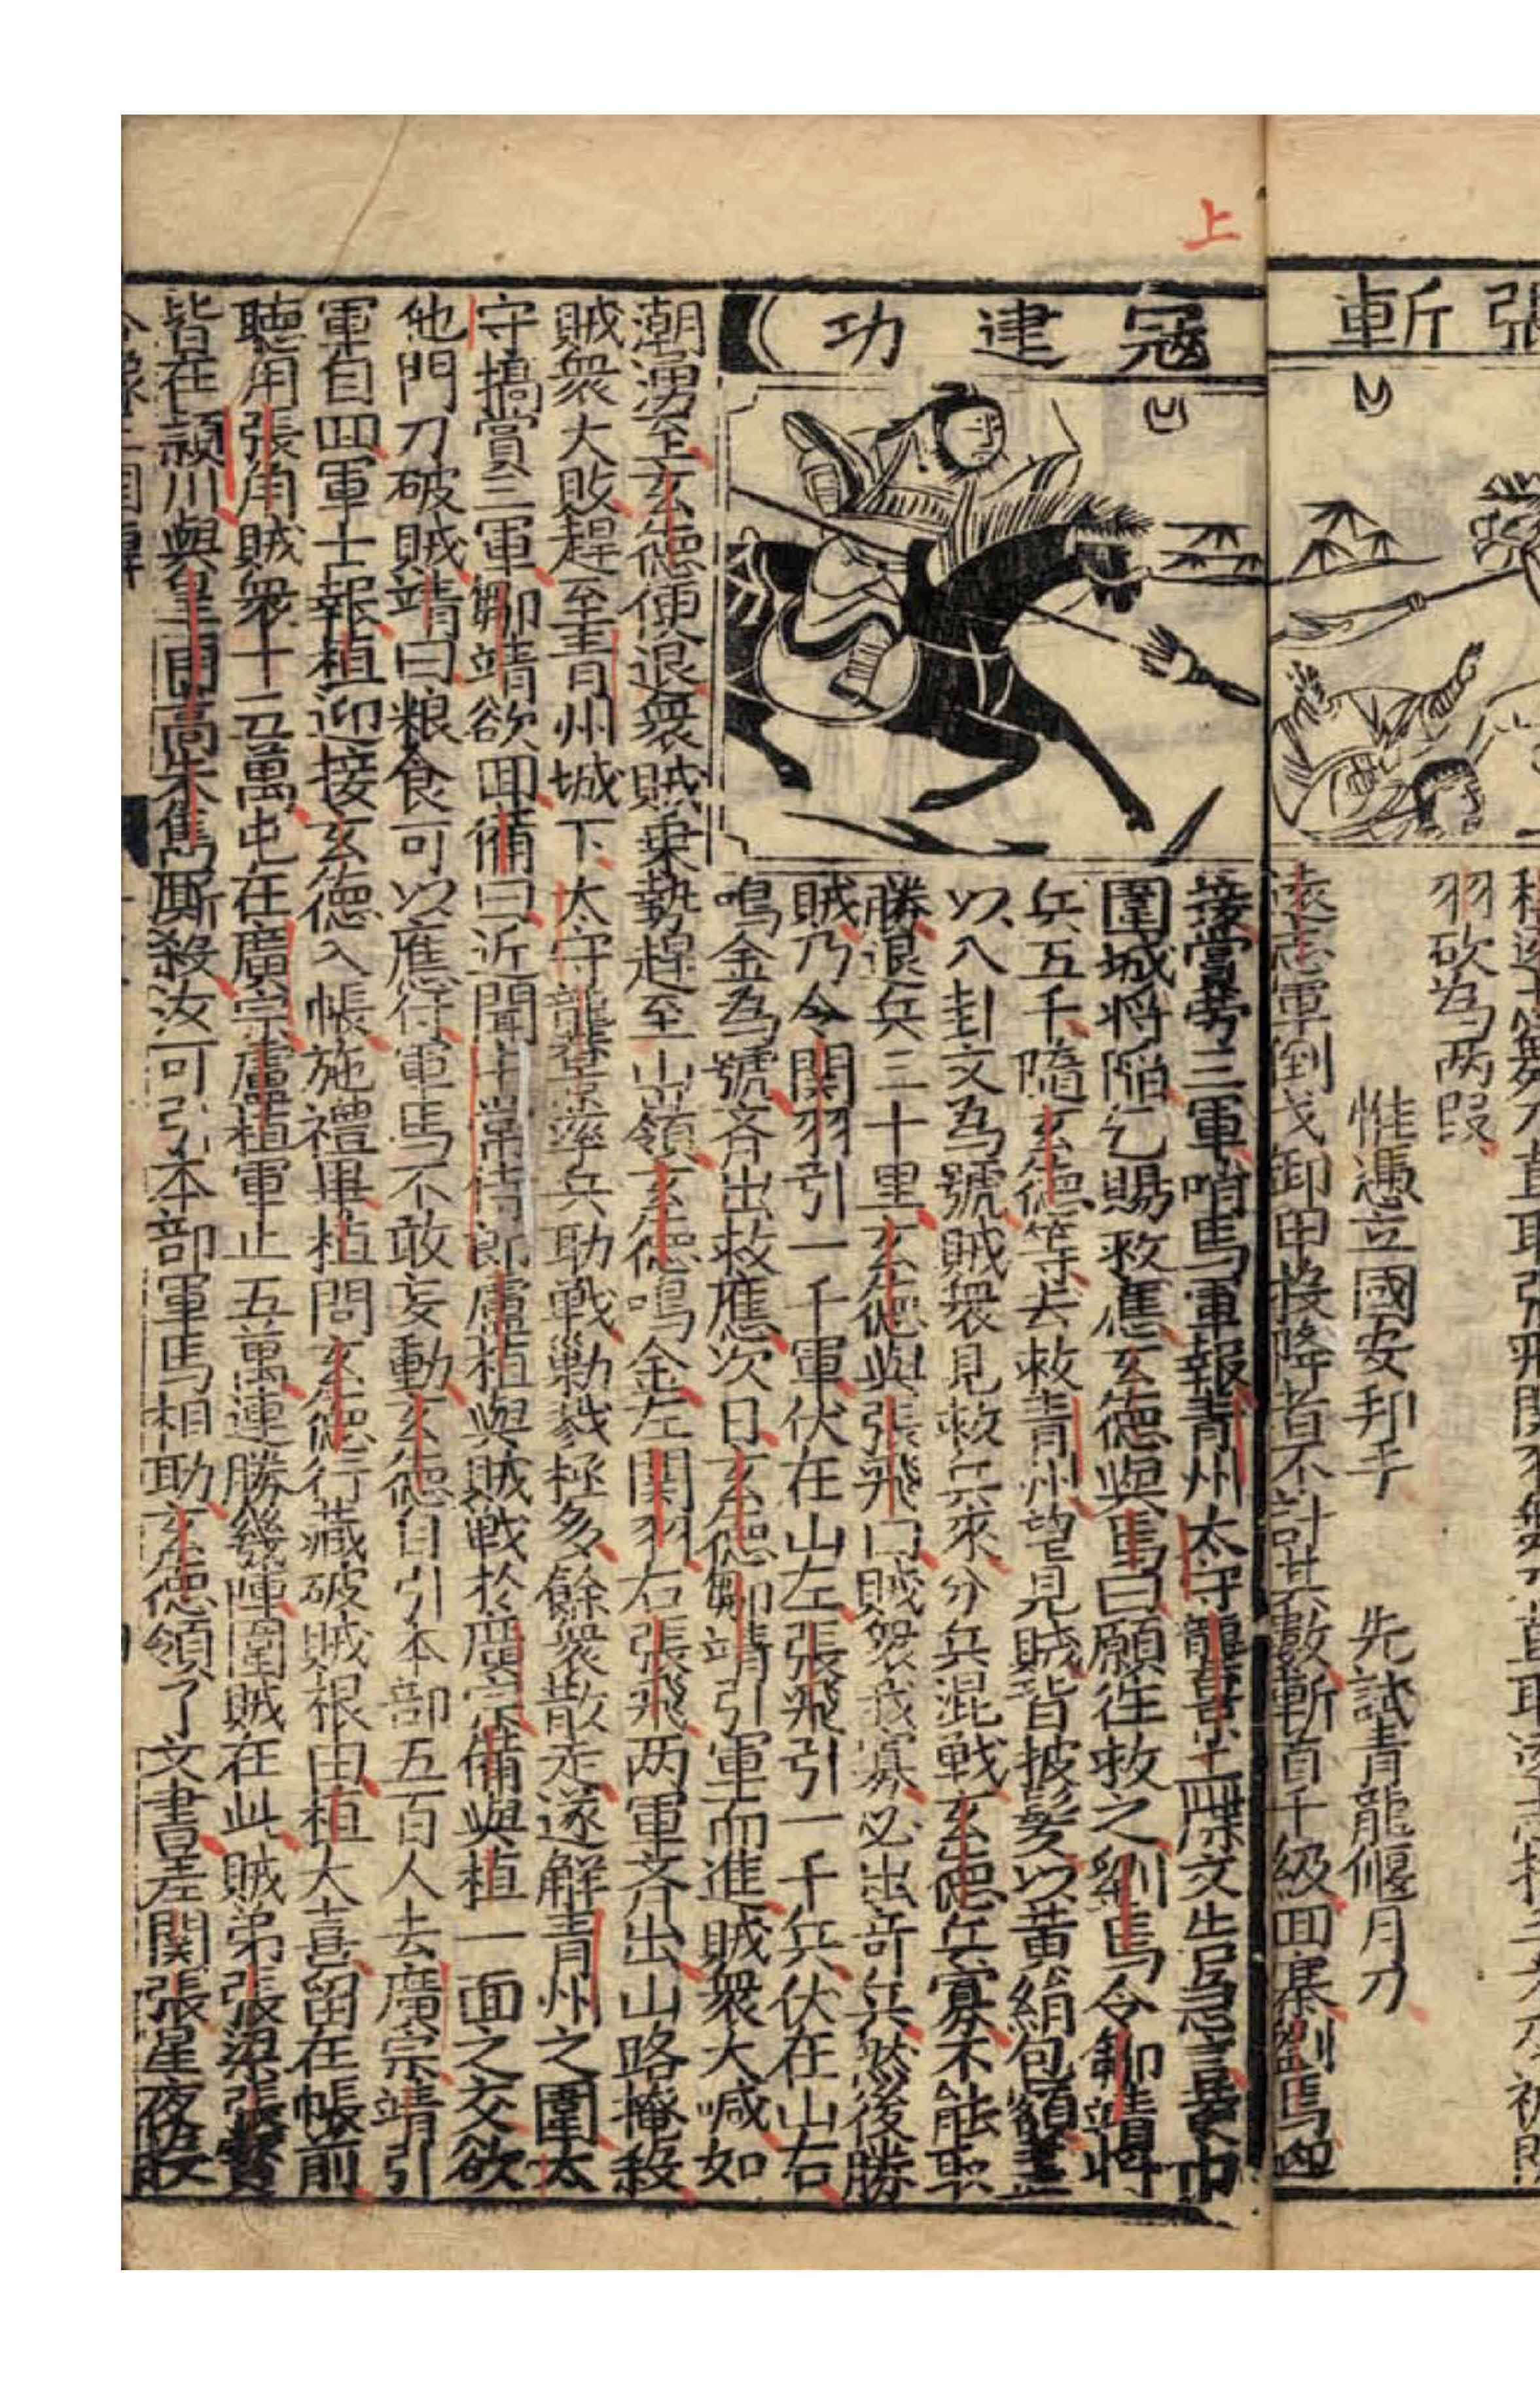 上
張斬
寇建功
羽砍為两段
惟憑立國安邦手　先試青龍偃月刀
遠志軍倒戈卸甲投降者不計其數斬首千級囬寨劉焉迎
接賞勞三軍哨馬軍報青州太守龔景上牒文告急言黃巾
圍城将陥乞賜救應玄德與焉曰願往救之劉焉令鄒靖将
兵五千随玄德等去救青州望見賊皆披髮以黄絹包額盖
以八卦文為號賊衆見救兵來分兵混戦玄德兵寡不能取
勝退兵三十里玄德與張飛曰賊衆我寡必出奇兵然後勝
賊乃令関羽引一千軍伏在山左張飛引一千兵伏在山右
鳴金為號斉出救應次日玄德鄒靖引軍而進賊衆大喊如
潮湧至玄德便退衆賊乗勢趕至山嶺玄德鳴金左関羽右張飛两軍斉出山路掩殺
賊衆大敗趕至青州城下太守龔景率兵助戦勦戮極多餘衆散走遂解青州之圍太
守搞賞三軍鄒靖欲囬備曰近聞中常侍郎盧植與賊戦於廣宗備與植一面之交欲
他門刀破賊靖曰粮食可以應付軍馬不敢妄動玄德自引本部五百人去廣宗靖引
軍自囬軍士報植迎接玄德入帳施禮畢植問玄德行藏破賊根由植大喜留在帳前
聽用張角賊衆十五萬屯在廣宗盧植軍止五萬連勝幾陣圍賊在此賊弟張梁張寳
皆在頴川與皇甫嵩朱雋厮殺汝可引本部軍馬相助玄德領了文書差関張星夜投